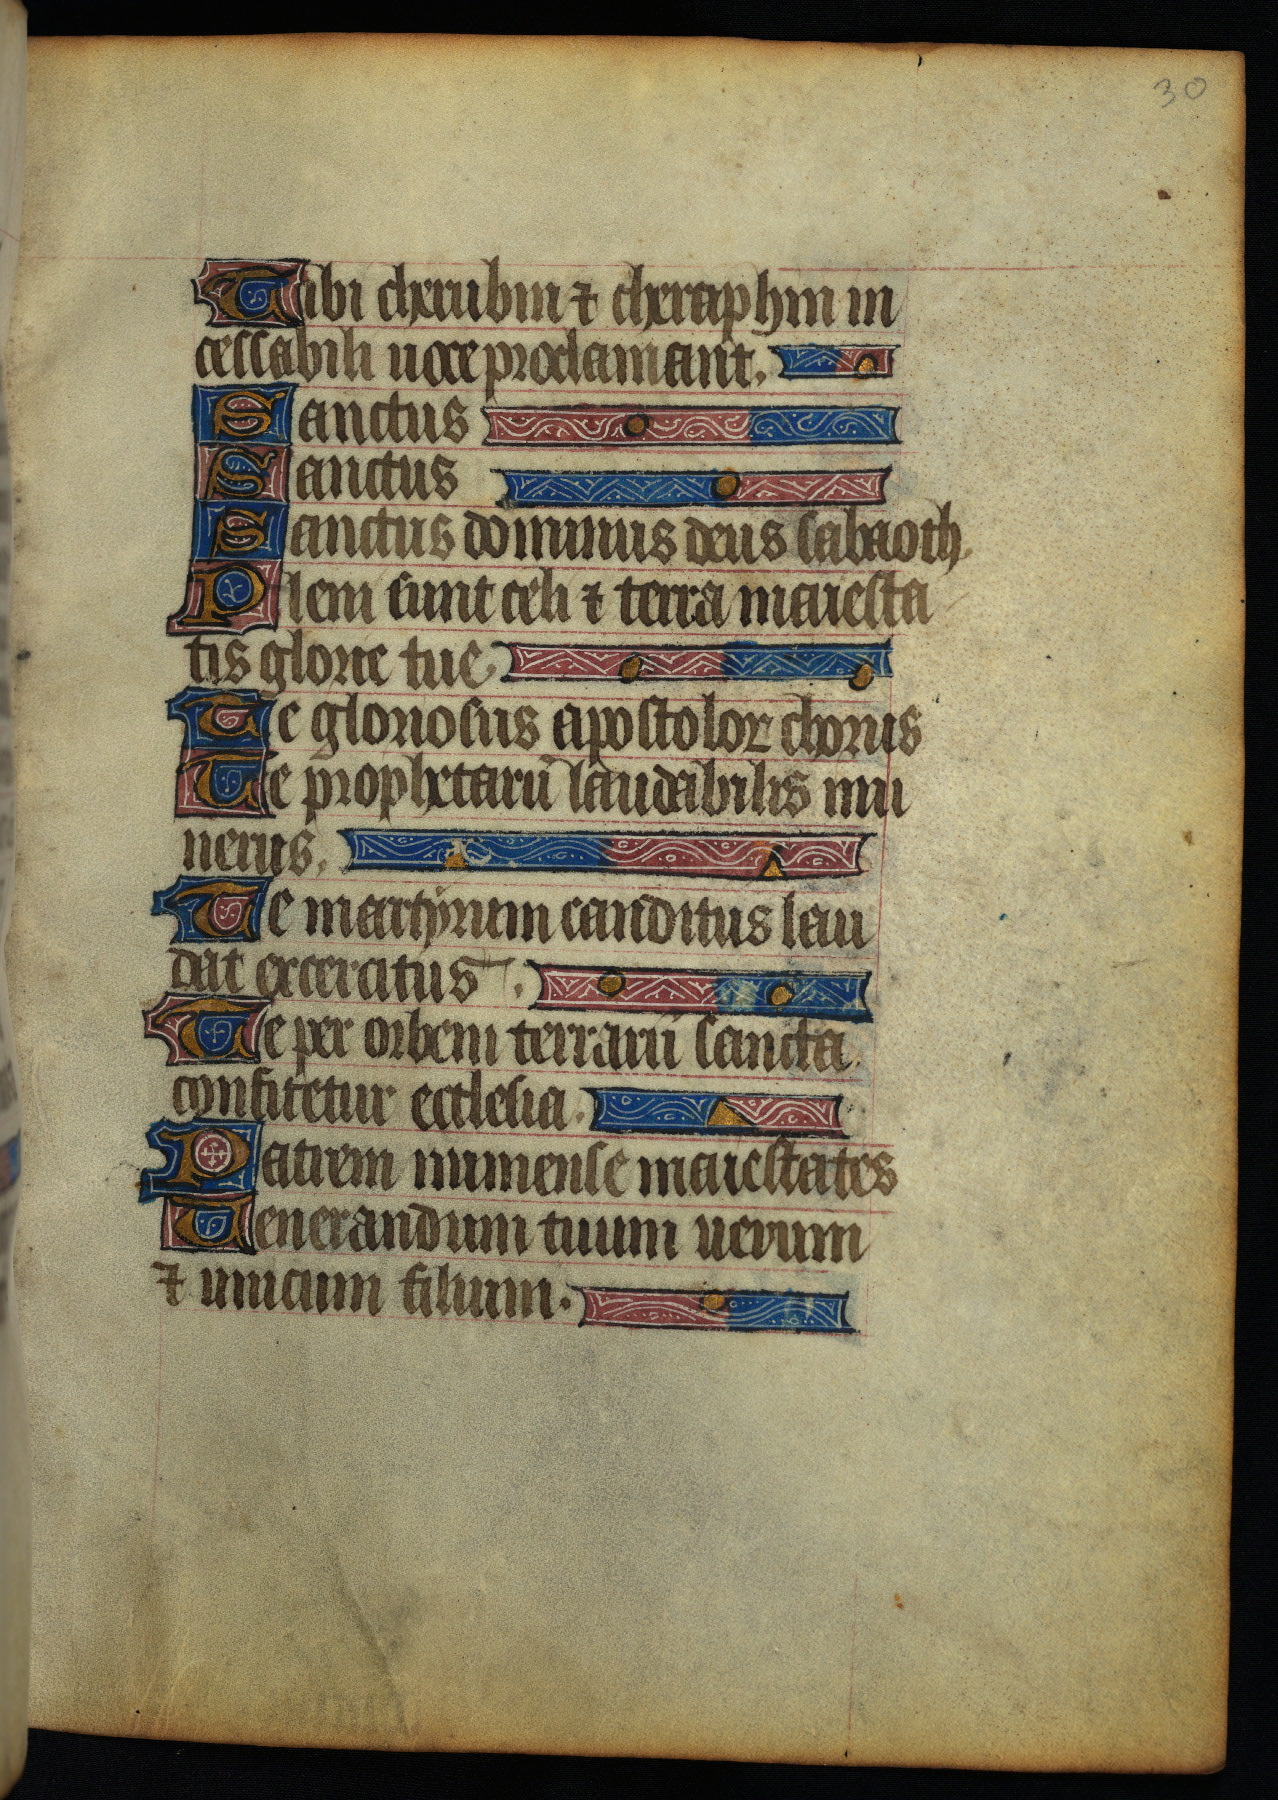 30
Tibi cherubin ⁊ cheraphin in
cessabili uoce proclamant.
Sanctus
Sanctus
Sanctus dominus deus sabaoth.
Pleni sunt celi ⁊ terra maiesta
tis glorie tue.
Te gloriosus apostoloꝝ chorus
Te prophetarū laudabilis nu
nerus.
Te martyrum canditus lau
dat excercitus.
Te per orbem terrarū sancta.
confitetur ecclesia.
Patrem inmense maiestates
Uenerandum tuum uerum
⁊ unicum filium.